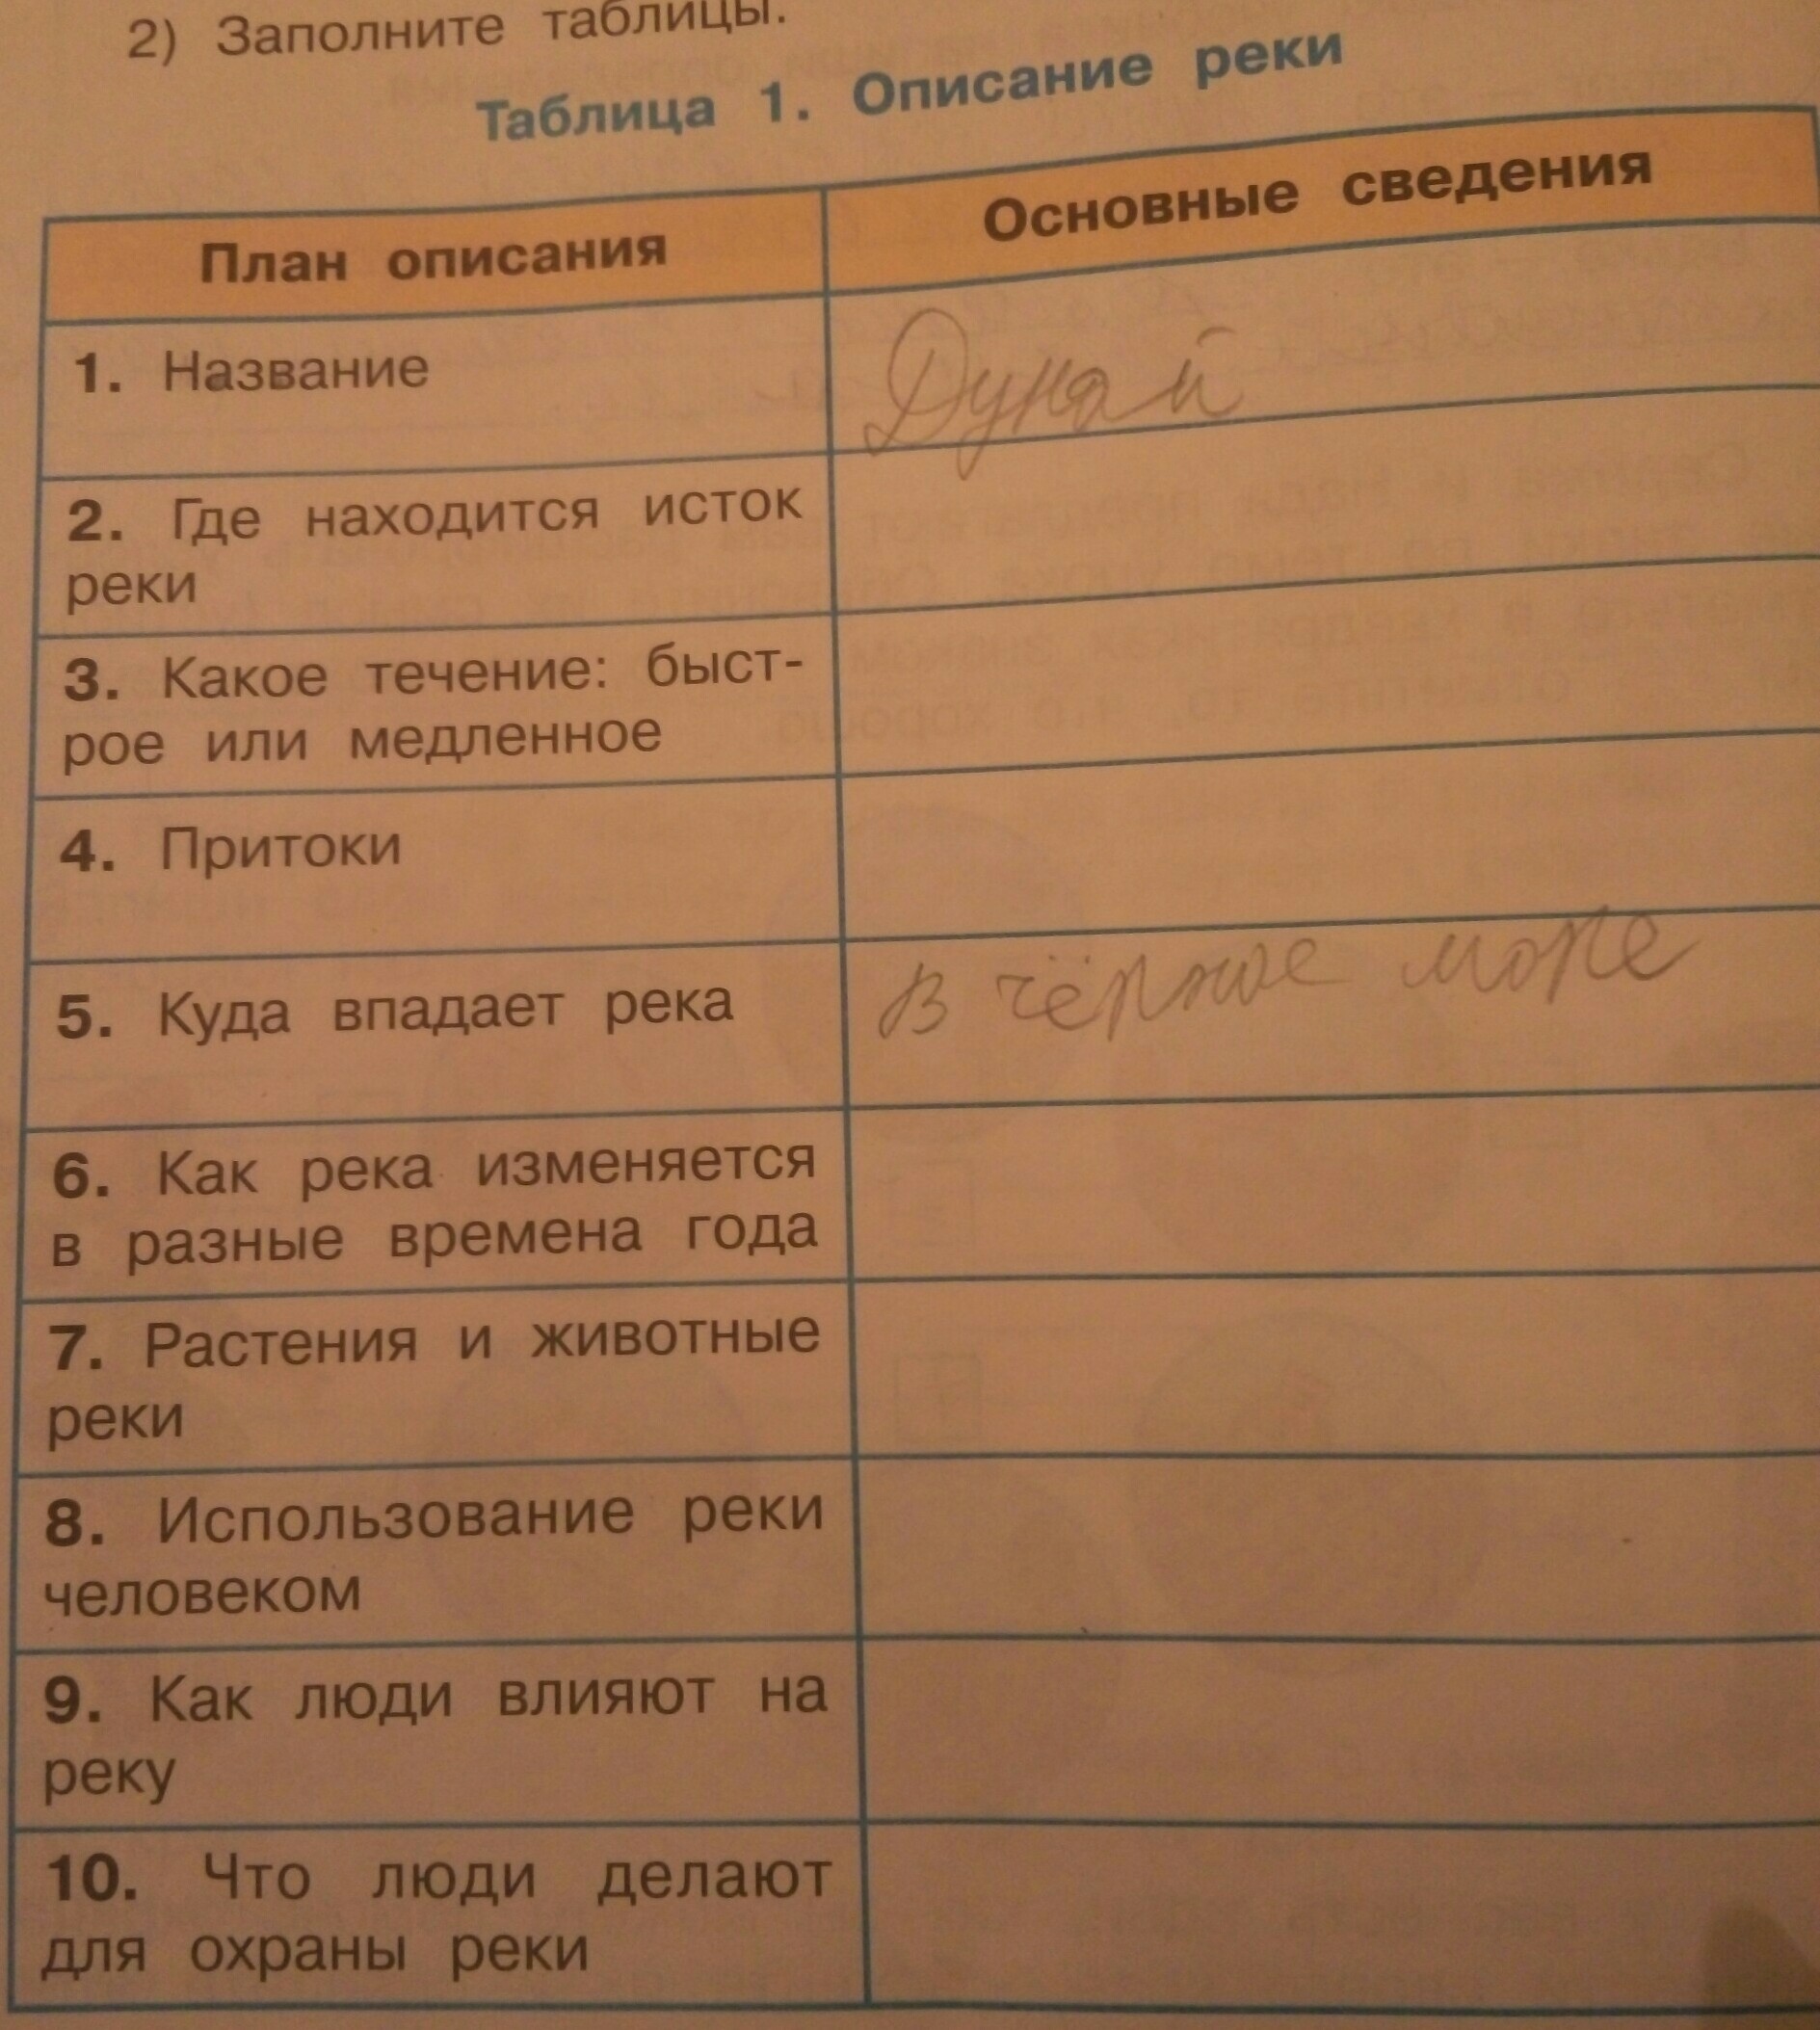 2) Заполните таблицы.
Таблица 1. Описание реки
План описания
Основные сведения
1. Название
Дунай
2. Где находится исток
реки
3. Какое течение: быст-
рое или медленное
4. Притоки
5. Куда впадает река
в чёрное море
6. Как река изменяется
в разные времена года
7. Растения и животные
реки
8. Использование реки
человеком
9. Как люди влияют на
реку
10. Что люди делают
для охраны реки